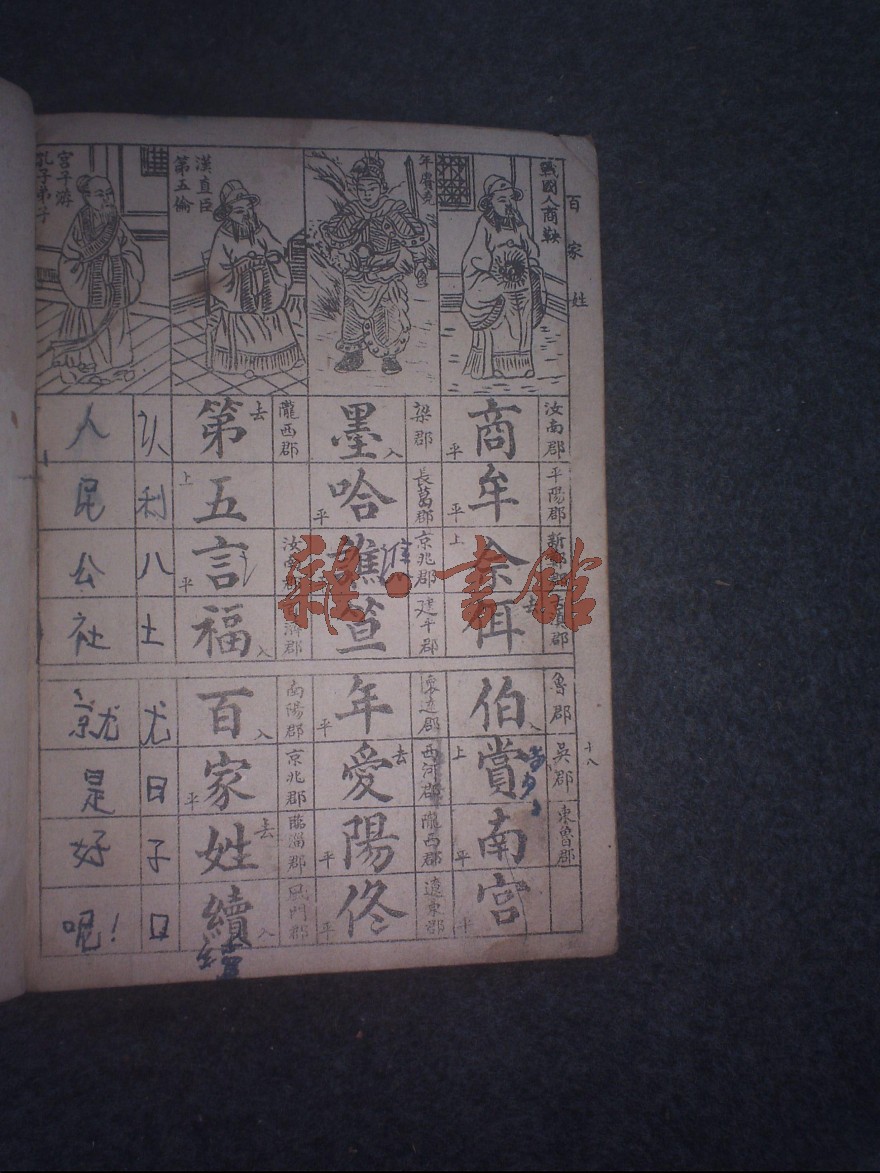 百家姓
戰國人商鞅
年羹堯
漢直臣
第五倫
宮子游
孔子弟子
汝南郡 平陽郡
商牟佘佴
平 平 上 去
梁郡 長葛郡 京兆郡 建平郡
墨哈譙笪
入 平
隴西郡 汝南郡
第五言福
去 上 平 入
以利八土
人民公社
魯郡 吳郡 東魯郡
伯賞南宮
入 上 平
遼遠郡 西河郡 隴西郡 遼東郡
年愛陽佟
平 去 平 平
南陽郡 京兆郡 臨淄郡 鴈門郡
百家姓續
入 平 去 入
尤日子口
就是好呢!
十八
雜·書館